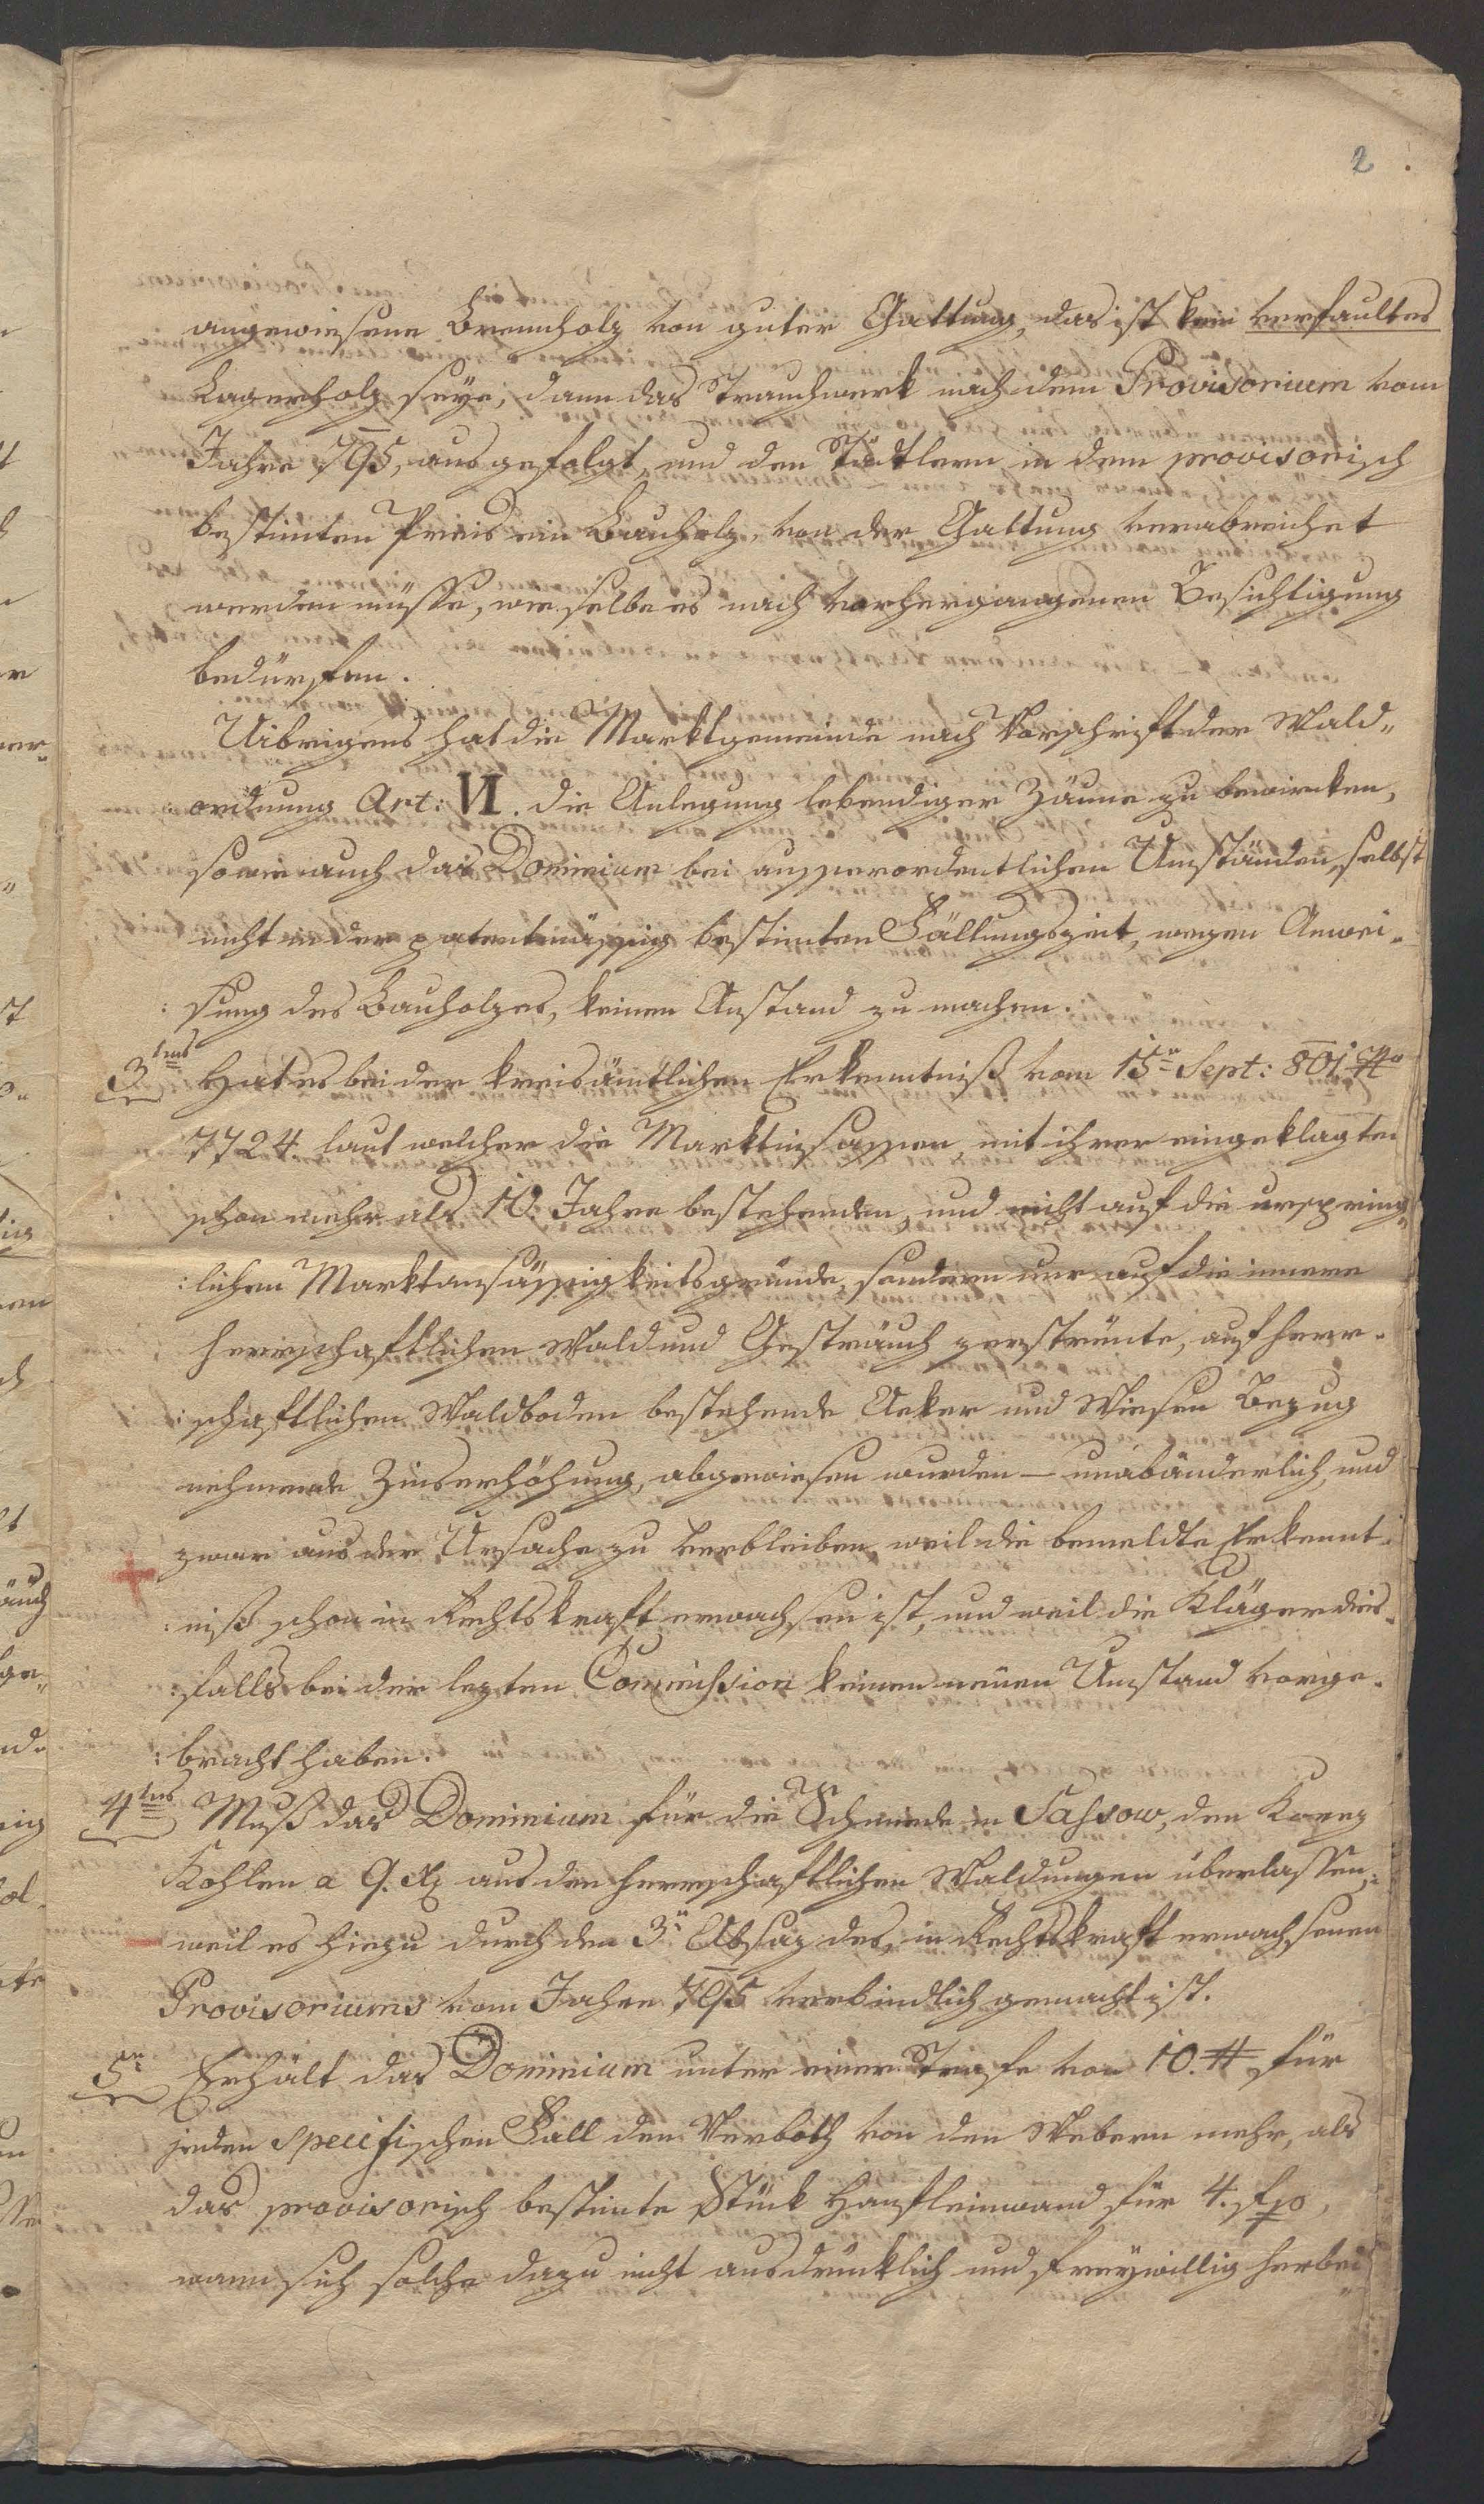 2
angewiesene Brennholz von guter Gattung, das ist kein verfaultes
Lagerholz seye, dann das Strauchwerk nach dem Provisorium vom
Jahre 795, ausgefolgt, und den Städtlern in dem provisorisch
bestimten Preis ein Bauholz, von der Gattung verabreichet
werden müsse, wie selbe es nach vorhergegangenen Besichtigung
bedürfen.
Uibrigens hat die Marktgemeinde nach Vorschrift der Wald„
ordnung Art: VI. die Anlegung lebendiger Zäune zu bewircken,
so wie auch das Dominium bei ausserordentlichen Umständen, selbst
nicht in der patentmässig bestimten Fällungszeit, wegen Anwei„
:sung des Bauholzes, keinen Anstand zu machen.
3tens Hat es bei der kreisämtlichen Erkenntniß vom 15n Sept: 801.
7724. laut welcher die Marktinsassen, mit ihrer eingeklagten
schon mehr als 10. Jahre bestehenden, und nicht auf die ursprüng„
:lichen Marktansässigkeitsgründe, sondern nur auf die innere
herrschaftlichen Wald und Gesträuch zerstreute, auf herr„
:schaftlichen Waldboden bestehende Aeker und Wiesen Bezug
nehmende Zinserhöhung, abgewiesen wurden — unabänderlich, und
zwar aus der Ursache zu verbleiben, weil die bemeldte Erkennt„
:niß schon in Rechtskraft erwachsen ist, und weil die Kläger dies„
:falls bei der lezten Commission keinen neuen Umstand vorge„
:bracht haben.
4tens Muß das Dominium für die Schmiede in Sassow, den Korez
Kohlen a 9. Xr aus den herrschaftlichen Waldungen überlassen,
weil es hiezu durch den 3n Absaz des, in Rechtskraft erwachsenen
Provisoriums vom Jahre 795 verbindlich gemacht ist.
5n Erhält das Dominium unter einer Strafe von 10. # für
jeden specifischen Fall den Verboth von den Webern mehr, als
das provisorisch bestimte Stück Hanfleinwand für 4. fpo,
wann sich solche dazu nicht ausdrücklich und freywillig herbei